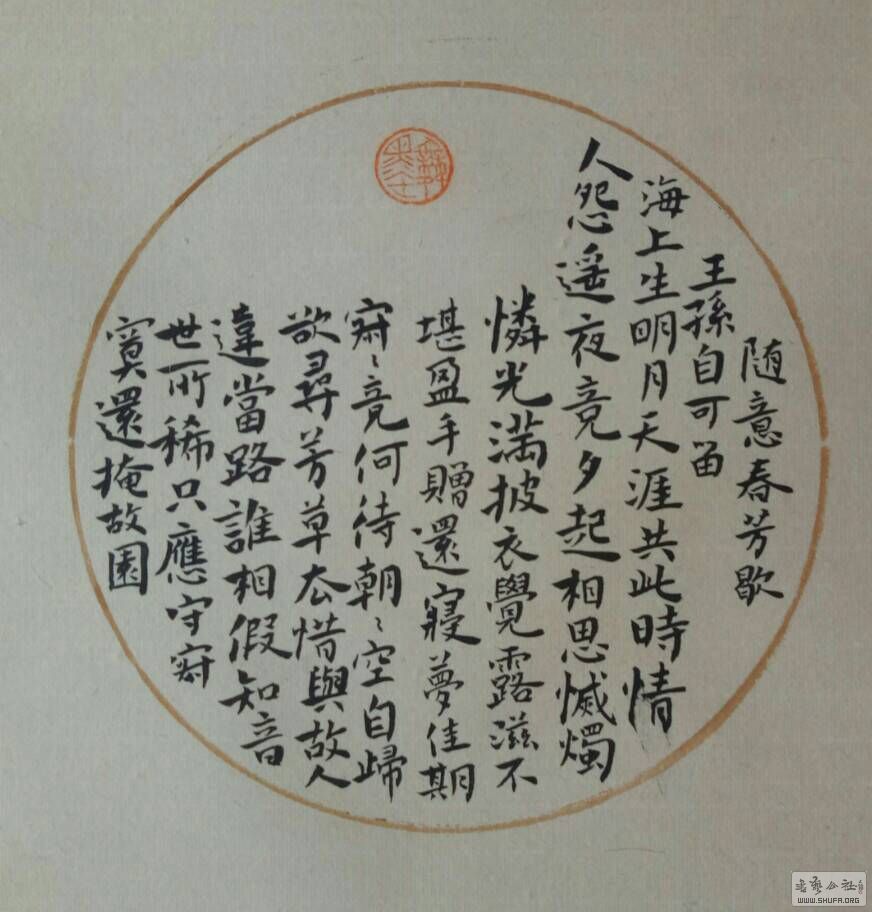 随意春芳歇
王孫自可畱
海上生明月天涯共此時情
人怨遥夜竟夕起相思滅燭
憐光滿披衣覺露滋不
堪盈手贈還寢夢佳期
寂〻竟何待朝〻空自歸
欲尋芳草去惜與故人
違當路誰相假知音
世所稀只應守寂
寞還掩故園
WWW.SHUFA.ORG